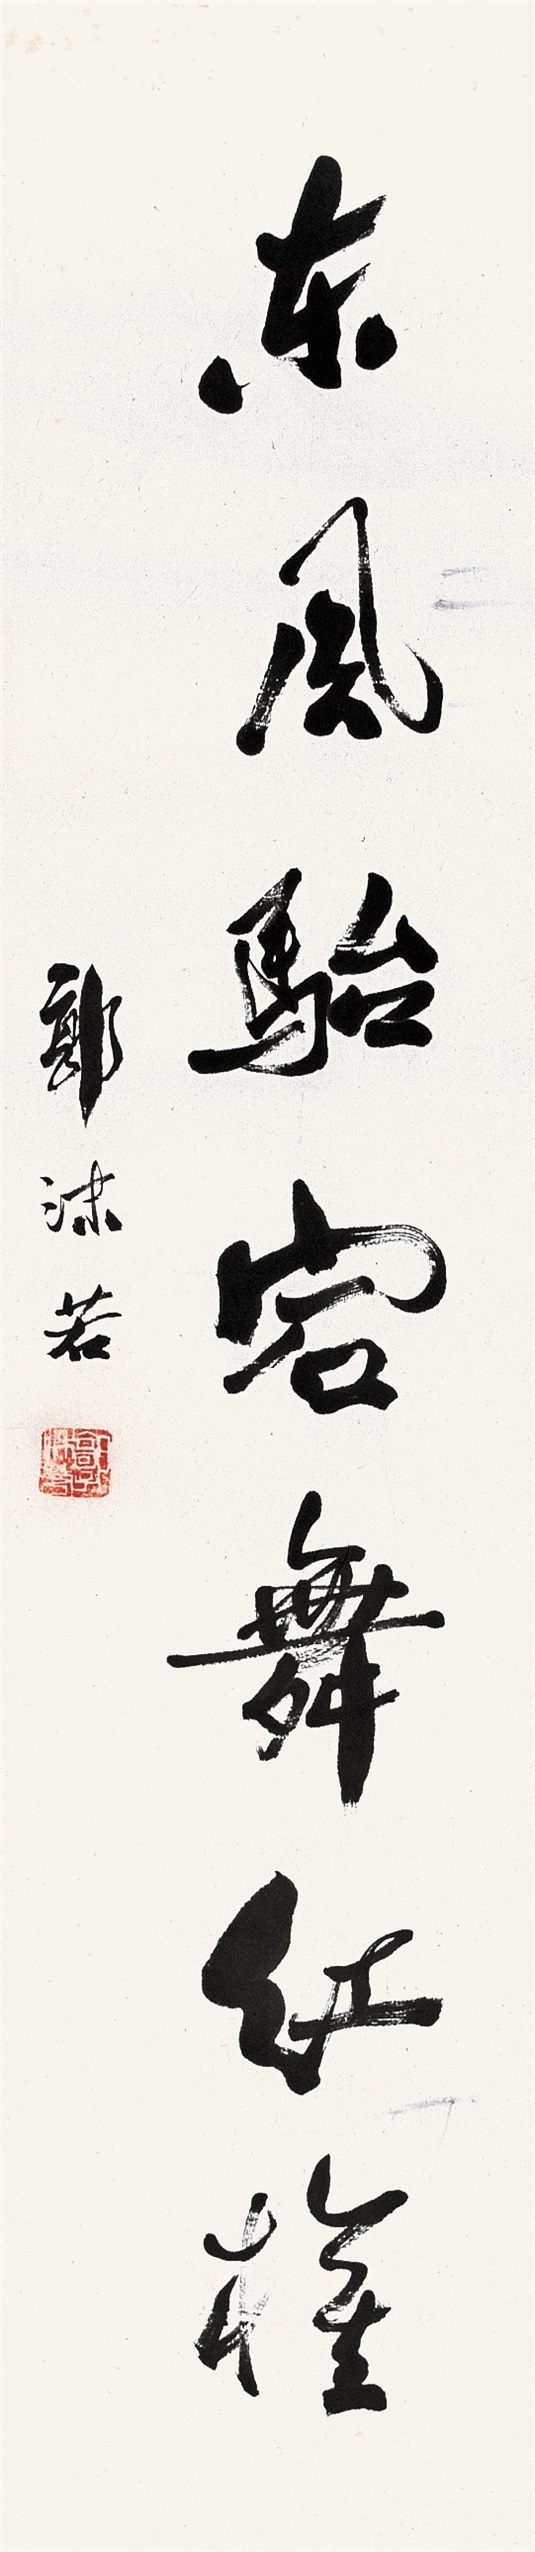 东风駘宕舞红旌
郭沫若